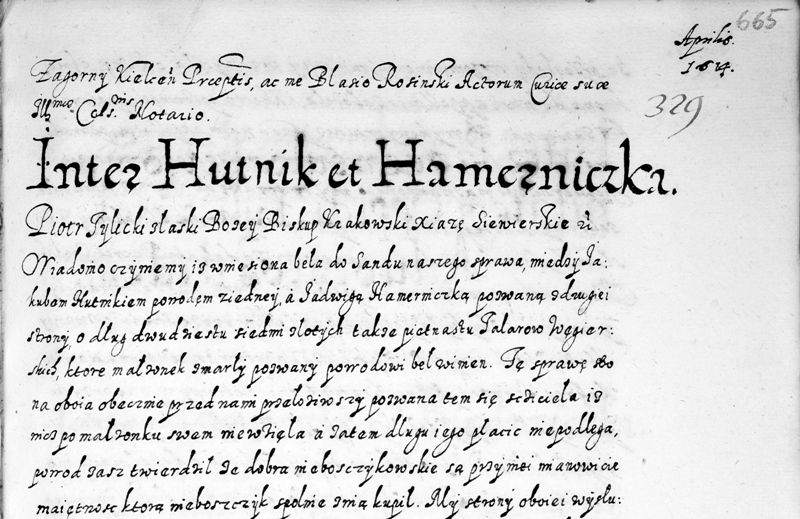 665
Aprilis.
1614.
329
Zagorny Kielceń Præeptis, ac me Blasio Rosinski Actorum Curiæ suæ
Illmæ Cels.nis Notario.
Inter Hutnik et Hamerniczka.
Piotr Tylicki z łaski Bozey Biskup Krakowski Xiazę Siewierskie
Wiadomo czyniemy iz wniesiona bela do Sandu naszego sprawa, miedzy Ja:
kubem Hutnikiem powodem z iedney, a Jadwigą Hamerniczką pozwaną z drugiei
strony, o dług dwudziestu siedmi złotych także pietnastu Talarow Węgier:
skich, ktore małzonek zmarły pozwany powodowi bel winien. Tę sprawę stro
na oboia obecznie przed nami przełoziwszy pozwana tem się sciciela iz
nicz po małzonku swem nie wzięla a zatem dlugu iego płacic nie podlega,
powod zasz twierdzil ze dobra nieboszczykowskie są przy niei mianowicie
maiętnosc ktorą nieboszczyk spolnie z nią kupil. My strony oboiei wysłu: